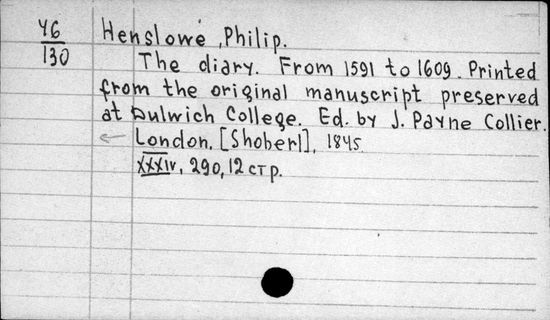 46
130
Henslowe, Philip.
The diary. From 1591 to 1609. Printed
from the original manuscript preserved
at Dulwich College. Ed. by J. Payne Collier.
London, [Shoberl], 1845.
XXXIV, 290, 12 стр.